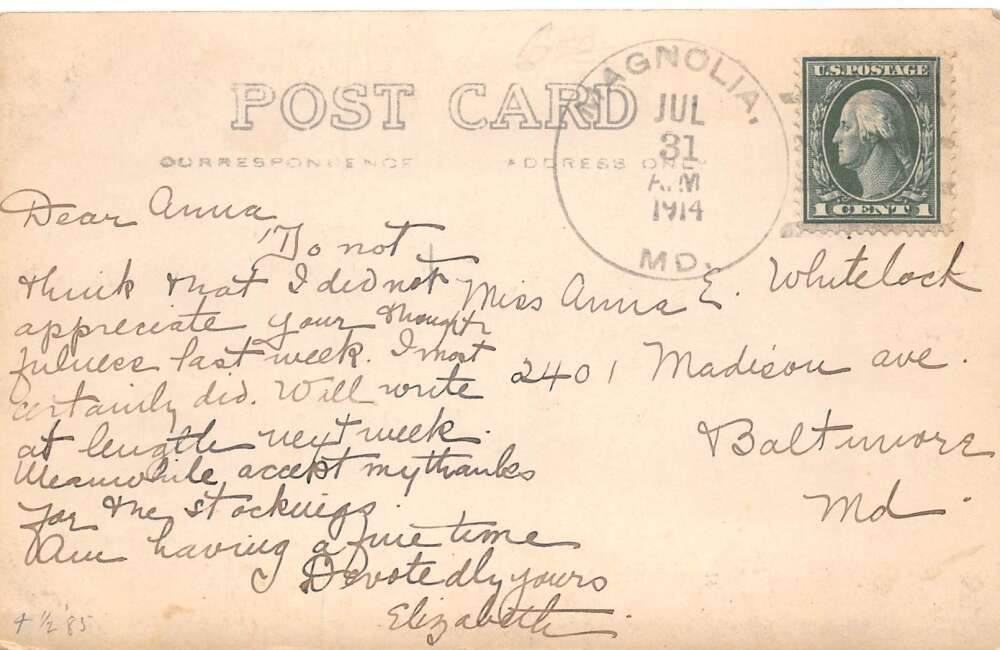 POST CARD
CORRESPONDENCE
ADDRESS ONLY
MAGNOLIA,
JUL
31
A.M
1914
MD.
U.S. POSTAGE
1 CENT 1
Dear Anna
Do not
think that I did not
appreciate your thought
fulness last week. I most
certainly did. Will write
at length next week.
Meanwhile accept my thanks
for the stockings.
Am having a fine time
Devotedly yours
Elizabeth
Miss Anna E. Whitelock
2401 Madison ave.
Baltimore
Md.
4 1/2 '85